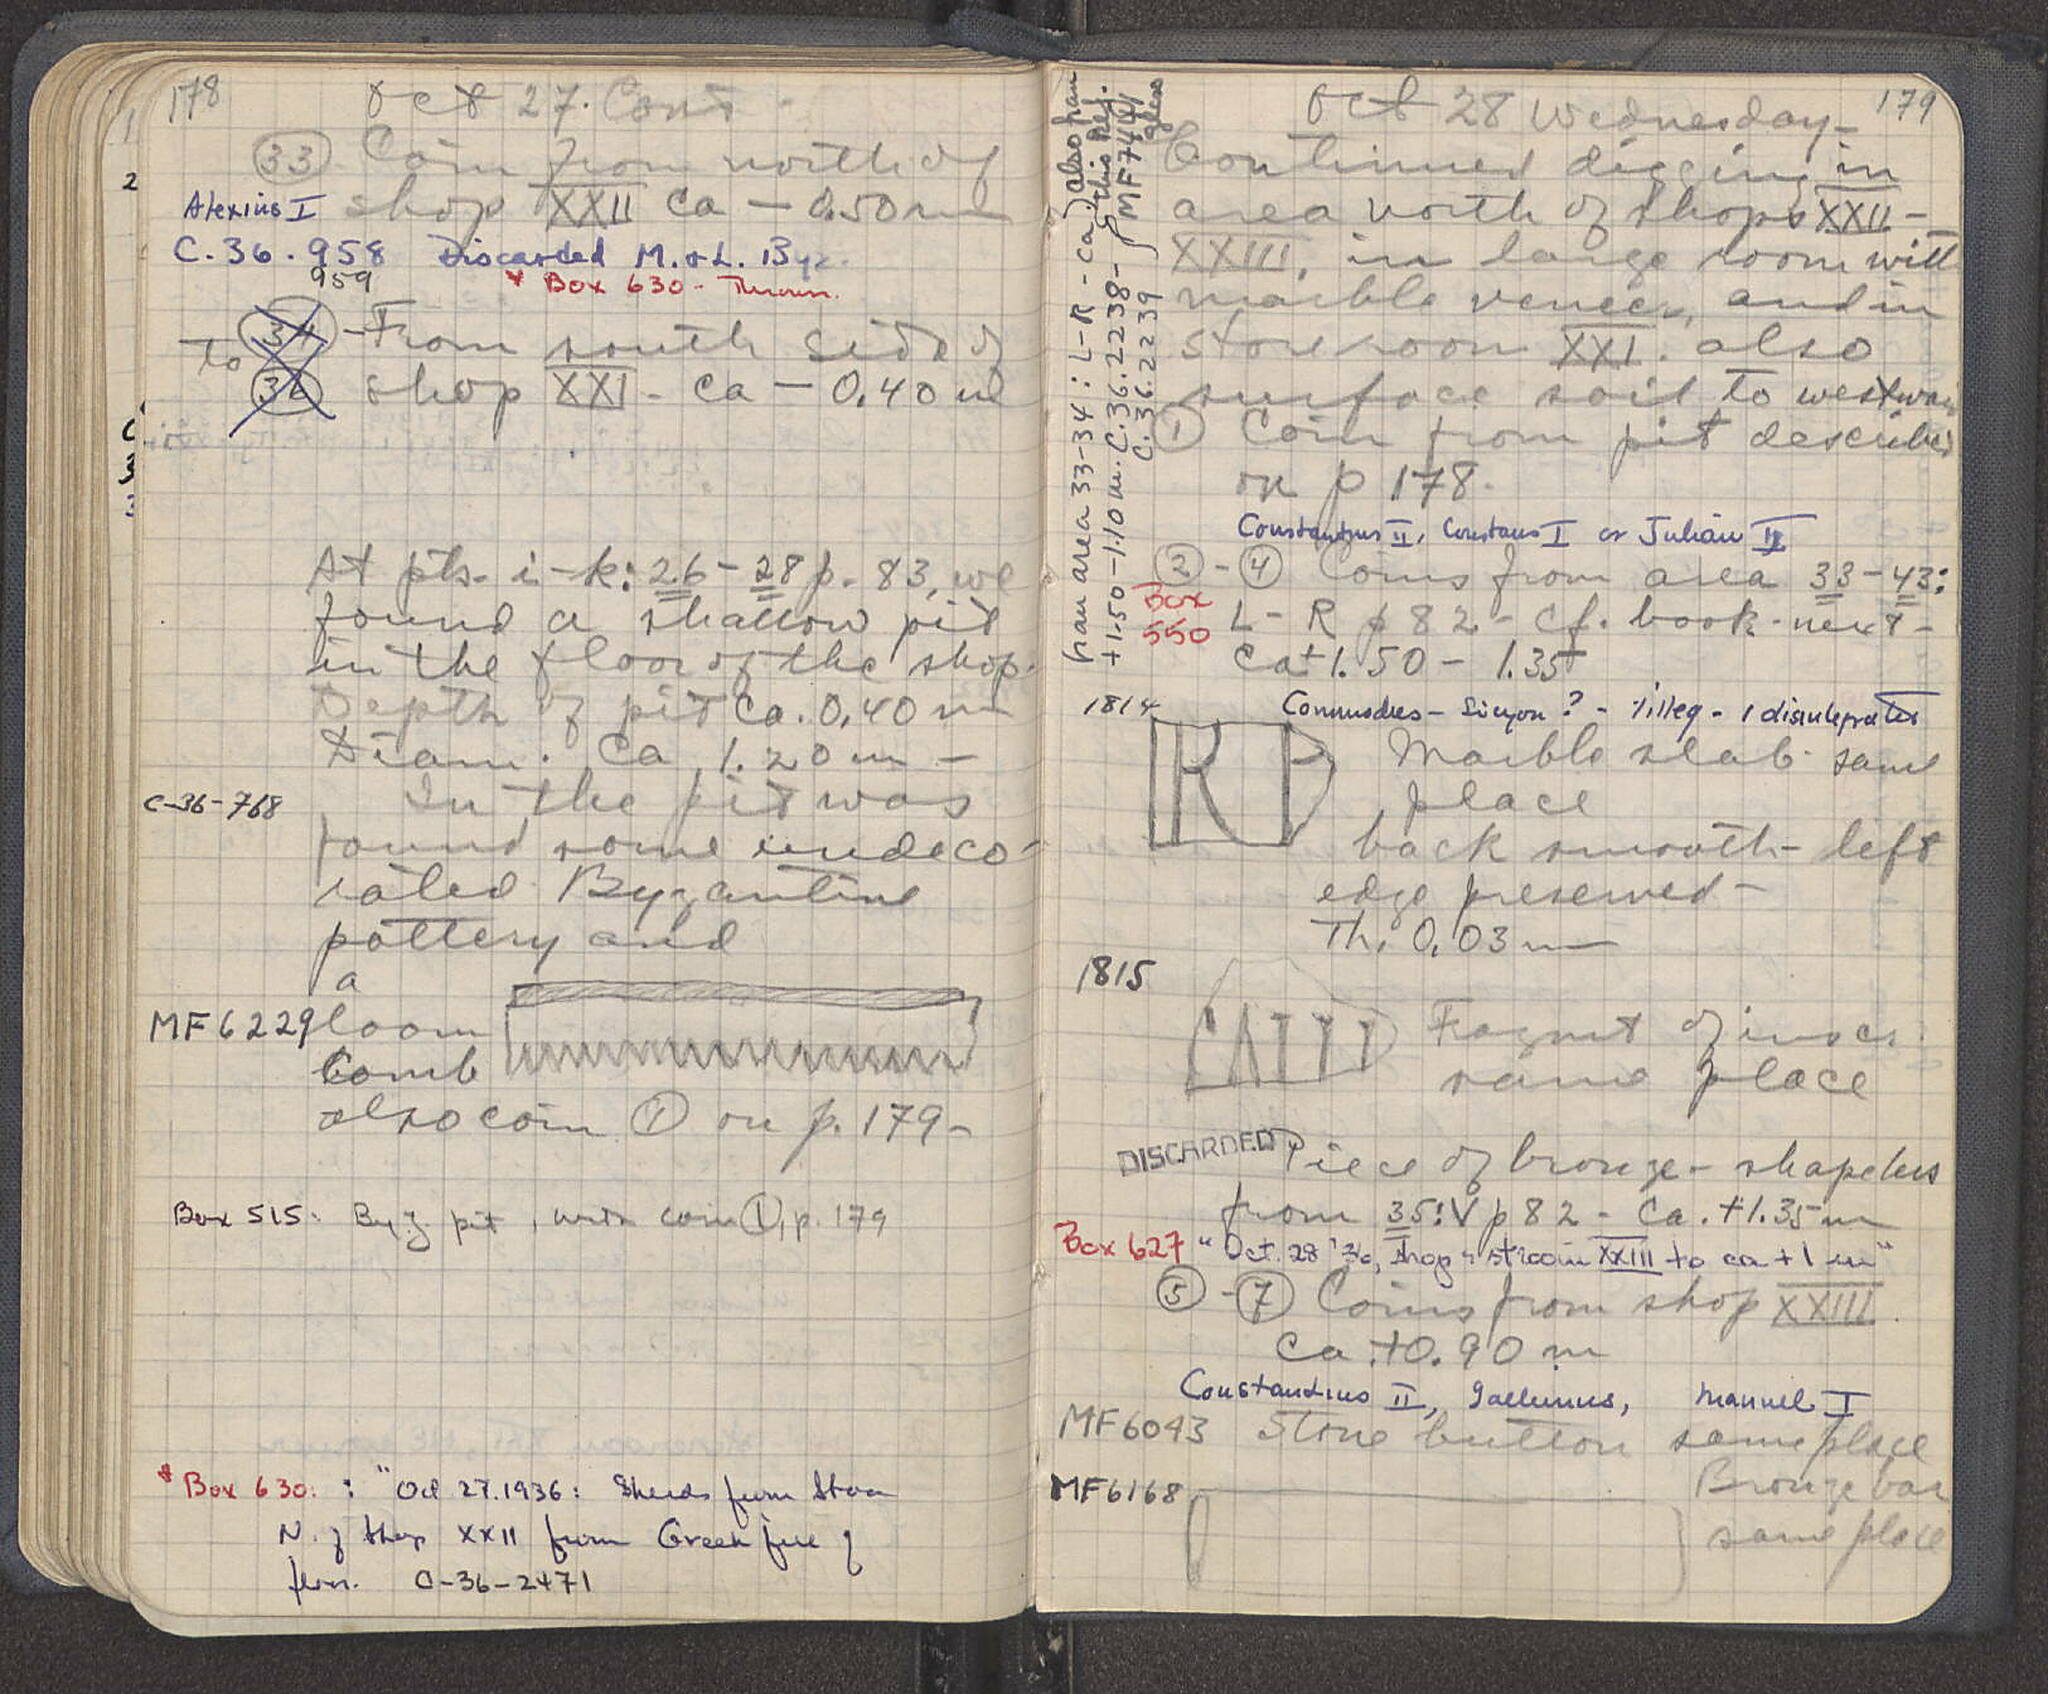 178
Oct 27. Cont -
33 Coin from north of
Alexius I shop XXII ca - 0.50 m
C.36.958 Discarded M. & L. Byz.
959 * Box 630 - Thrown.
34 - From south side of
to 36 shop XXI - ca - 0.40 m
At pts. i-k: 26-28 p. 83, we
found a shallow pit
in the floor of the shop.
Depth of pit ca. 0.40 m
Diam. ca 1.20 m -
C-36-768 In the pit was
found some undeco-
rated Byzantine
pottery and
a
MF6229 loom
comb
also coin 1 on p. 179-
Box 515: Byz. pit, with coin 1, p. 179
* Box 630: : "Oct 27.1936: Sherds from Stoa
N. of shop XXII from Greek fill of
floor. C-36-2471
179
Oct 28 Wednesday-
Continued digging in
area north of shops XXII-
XXIII, in large room with
marble veneer, and in
storeroom XXI. also
surface soil to westward
1 Coin from pit described
on p 178.
Constantius II, Constans I or Julian II
2 - 4 Coins from area 33-43:
Box 550
L - R p 82 - cf. book next -
ca + 1.50 - 1.35
Commodus - Sicyon? - 1 illeg - 1 disintegrated
from area 33-34 : L-R - ca) also from
+1.50-1.10 m. C.36.2238- this Reg.
C.36.2239 MF7444
glass
1814
RP Marble slab same
place
back smooth - left
edge preserved -
Th. 0.03 m
1815
Fragmt of inscr.
same place
DISCARDED Piece of bronze - shapeless
from 35:V p 82 - ca. +1.35 m
Box 627 "Oct. 28 '36, shop & stroom XXIII to ca +1 m"
5 - 7 Coins from shop XXIII.
ca +0.90 m
Constantius II, Gallienus, Manuel I
MF6043 Stone button same place
MF6168 Bronze bar
same place